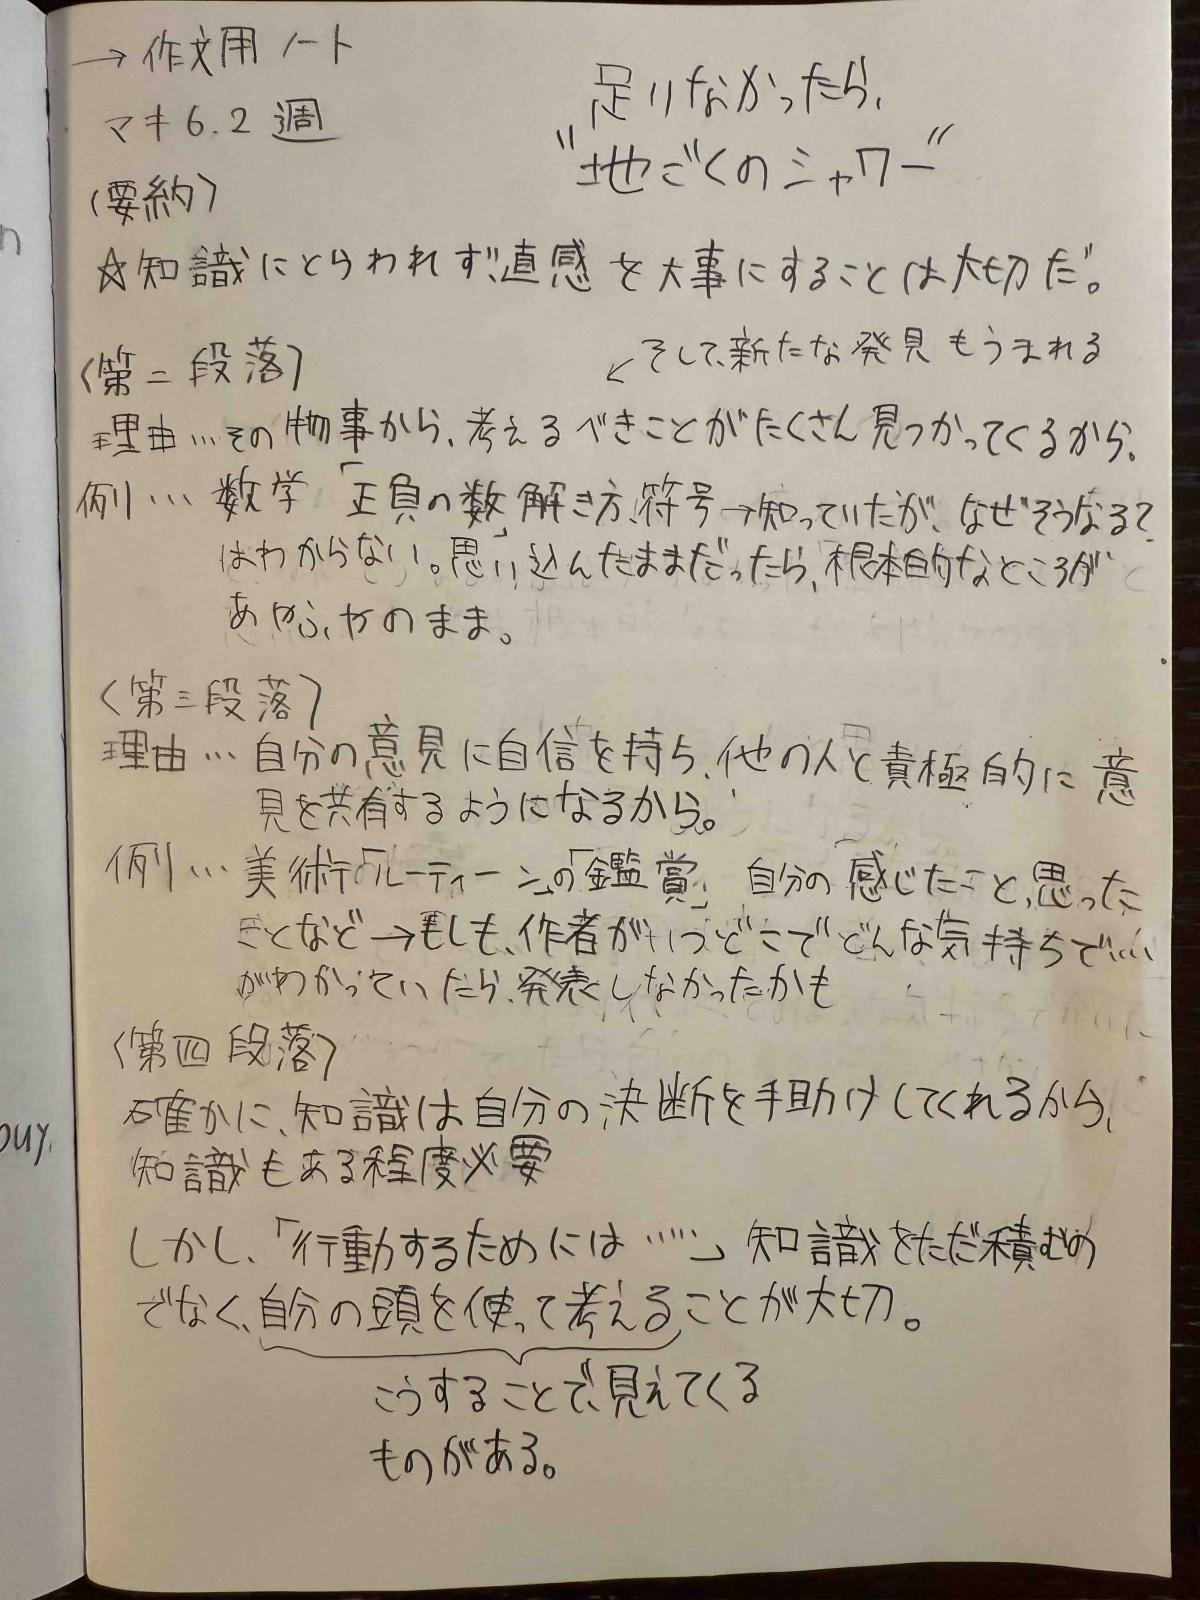 →作文用ノート
マキ6.2週
足りなかったら、
"地ごくのシャワー"
〈要約〉
☆知識にとらわれず、直感を大事にすることは大切だ。
〈第二段落〉
↙そして、新たな発見もうまれる
理由…その物事から、考えるべきことがたくさん見つかってくるから。
例…数学「正負の数」解き方、符号→知っていたが、なぜそうなる?
はわからない。思い込んだままだったら、根本的なところが
あやふやのまま。
〈第三段落〉
理由…自分の意見に自信を持ち、他の人と責極的に意
見を共有するようになるから。
例…美術「ルーティーン」の「鑑賞」自分の感じたこと、思った
ことなど→もしも、作者がいつどこでどんな気持ちで……
がわかっていたら、発表しなかったかも
〈第四段落〉
確かに、知識は自分の決断を手助けしてくれるから、
知識もある程度必要
しかし、「行動するためには……」知識をただ積むの
でなく、自分の頭を使って考えることが大切。
こうすることで、見えてくる
ものがある。
n
buy.